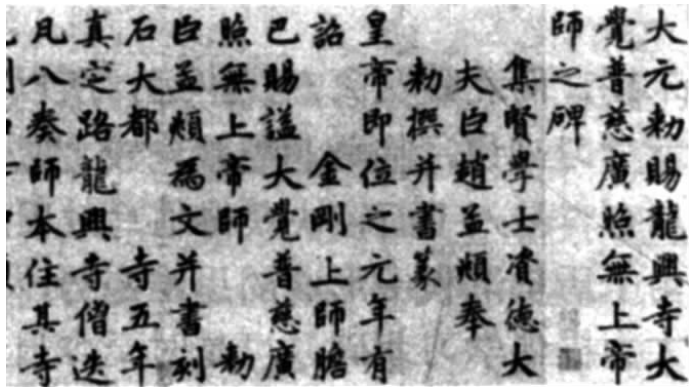 大元勑賜龍興寺大
覺普慈廣照無上帝
師之碑
集賢學士資德大
夫臣趙孟頫奉
勑撰并書篆
皇帝即位之元年有
詔金剛上師膽
巴賜謚大覺普慈廣
照無上帝師勑
臣孟頫為文并書刻
石大都寺五年
真定路龍興寺僧迭
凡八奏師本住其寺